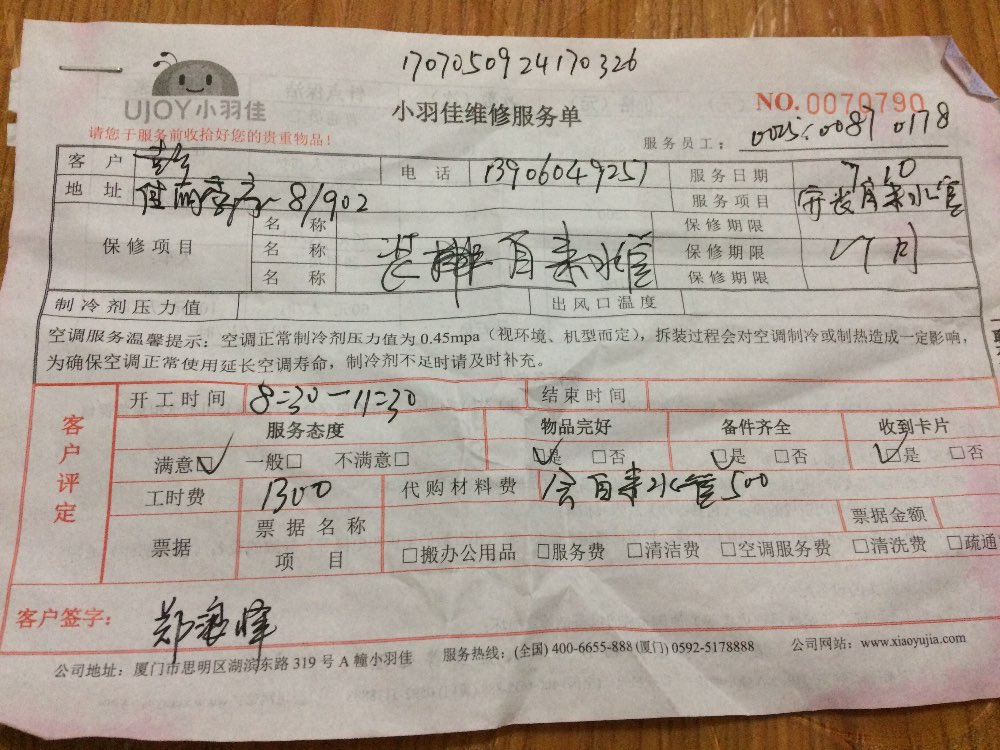 1707050924170326
UJOY小羽佳
小羽佳维修服务单
NO.0070790
请您于服务前收拾好您的贵重物品！
服务员工： 0025、0087 0178
客 户 电 话 13906049257 服务日期 7.10
地 址 佳丽 8/902 服务项目 自来水管
保修项目
名 称 保修期限
名 称 装 自来水管 保修期限 个月
名 称 保修期限
制冷剂压力值 出风口温度
空调服务温馨提示：空调正常制冷剂压力值为 0.45mpa（视环境、机型而定），拆装过程会对空调制冷或制热造成一定影响，
为确保空调正常使用延长空调寿命，制冷剂不足时请及时补充。
客户评定
开工时间 8:30—11:30 结束时间
服务态度 物品完好 备件齐全 收到卡片
满意☑ 一般□ 不满意□ ☑是 □否 ☑是 □否 ☑是 □否
工时费 1300 代购材料费 含自来水管500
票据 票据名称 票据金额
项 目 □搬办公用品 □服务费 □清洁费 □空调服务费 □清洗费 □疏通
客户签字：
公司地址：厦门市思明区湖滨东路 319 号 A 幢小羽佳 服务热线：(全国) 400-6655-888 (厦门) 0592-5178888 公司网站：www.xiaoyujia.com